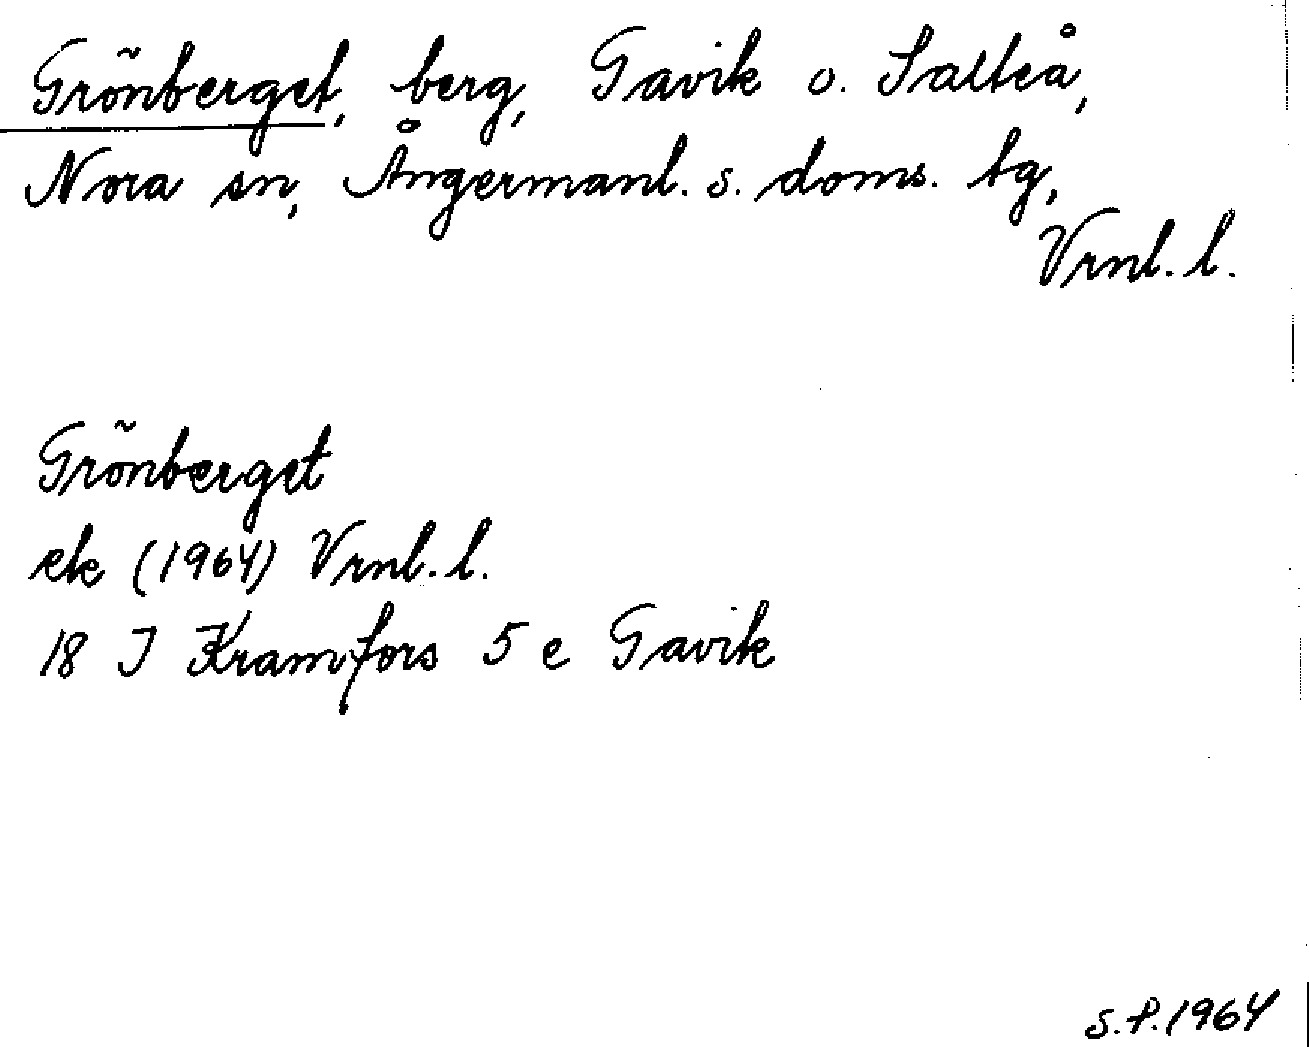 Grönberget, berg, Gavik o. Salteå,
Nora sn, Ångermanl. s. doms. tg,
Vrnl. l.
Grönberget
ek (1964) Vrnl. l.
18 J Kramfors 5 e Gavik
S.P. 1964